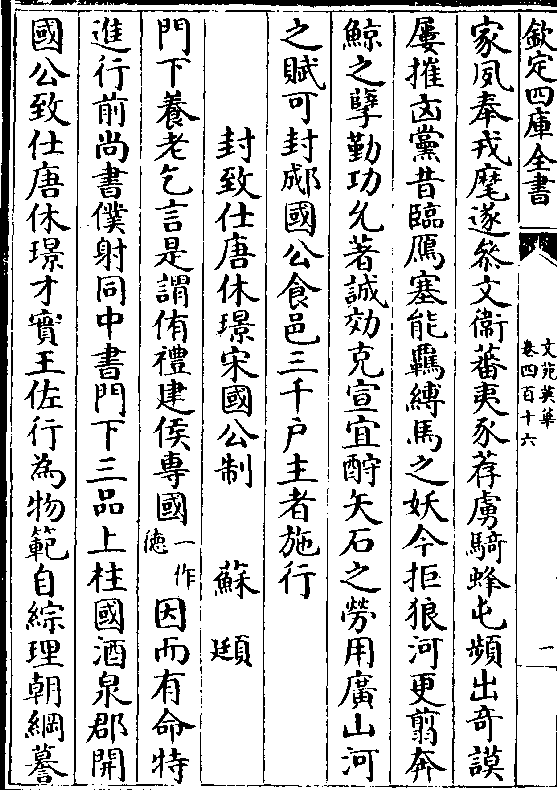 欽定四庫全書
文苑英華
卷四百十六
一
家夙奉戎麾遂叅文衛蕃夷豕荐虜騎蜂屯頻出竒謨
屢摧凶黨昔臨鴈塞能羈縛馬之妖今拒狼河更翦奔
鯨之孽勤功允著誠効克宣宜酧矢石之勞用廣山河
之賦可封郕國公食邑三千户主者施行
封致仕唐休璟宋國公制 蘇頲
門下養老乞言是謂侑禮建侯專國一作德因而有命特
進行前尚書僕射同中書門下三品上柱國酒泉郡開
國公致仕唐休璟才實王佐行為物範自綜理朝綱謩